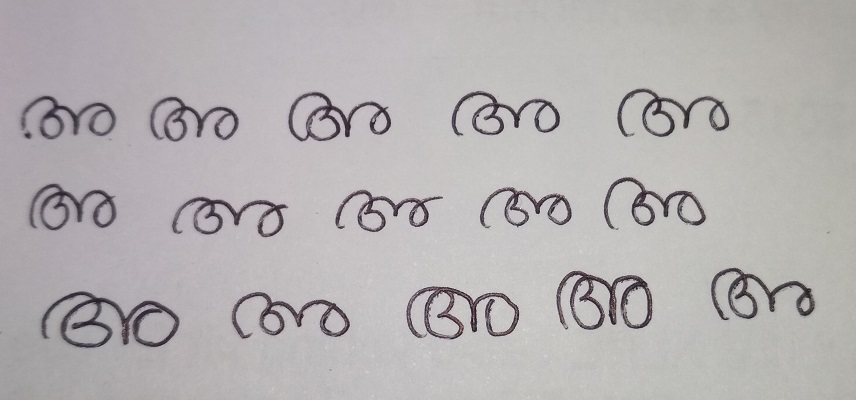 അ അ അ അ അ
അ അ അ അ അ
അ അ അ അ അ